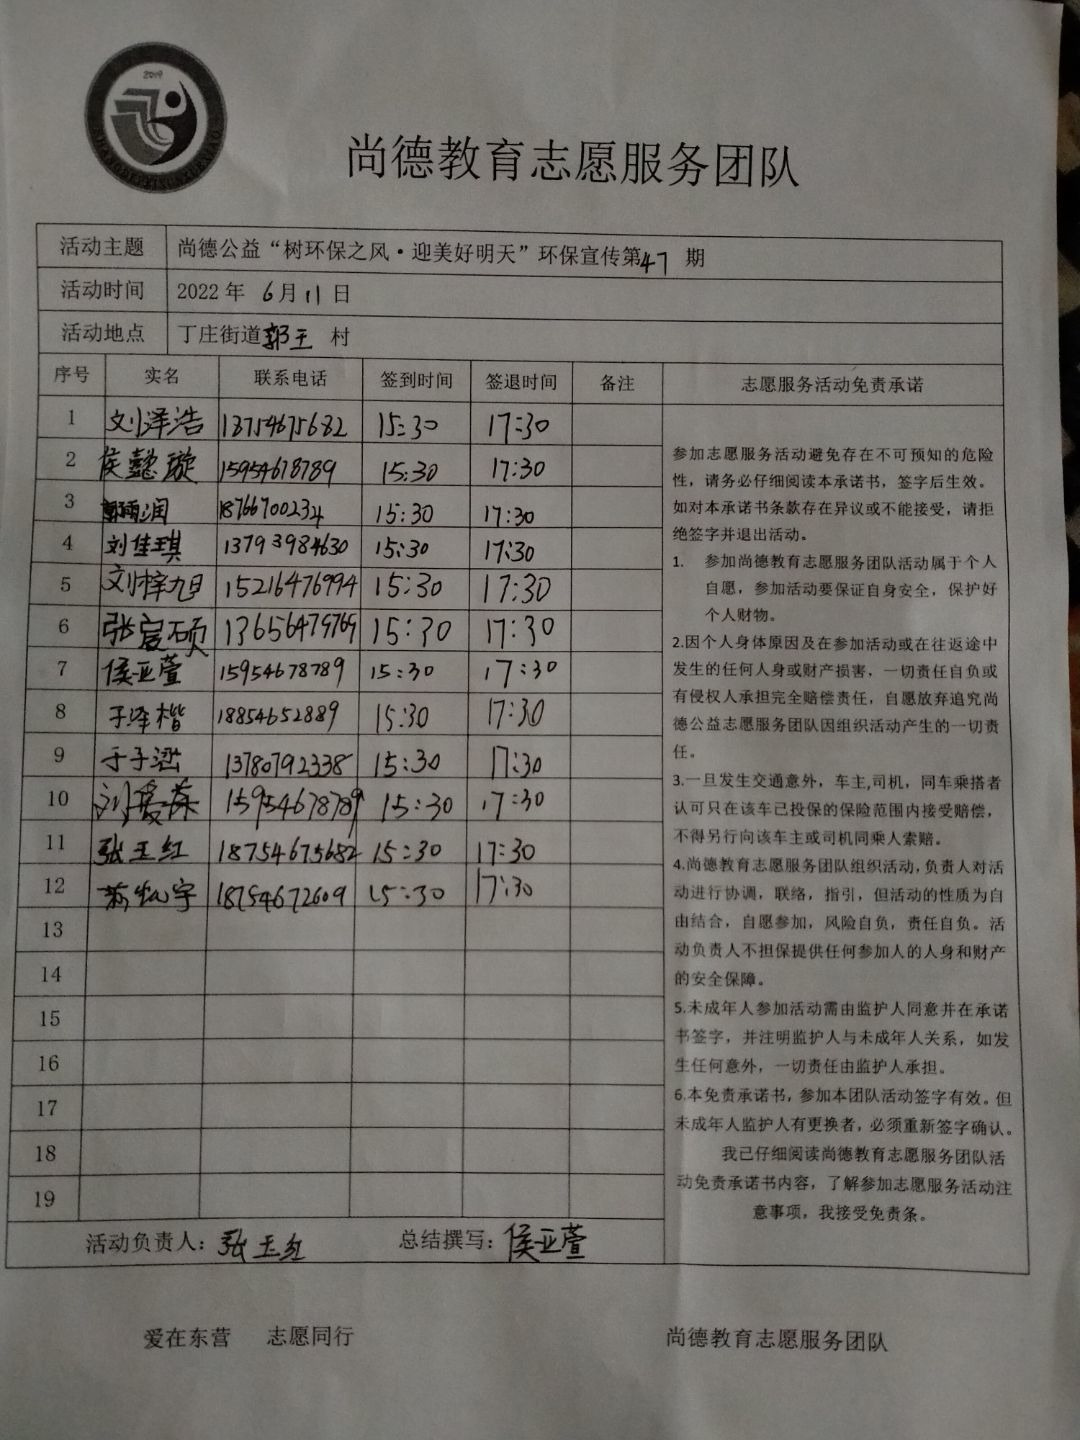 2019
尚德教育志愿服务团队
活动主题 尚德公益“树环保之风·迎美好明天”环保宣传第47 期
活动时间 2022 年 6月11日
活动地点 丁庄街道郭王 村
序号 实名 联系电话 签到时间 签退时间 备注 志愿服务活动免责承诺
1 刘泽浩 18754675682 15:30 17:30
2 侯懿璇 15954678789 15:30 17:30
3 润 18766700234 15:30 17:30
4 刘佳琪 13793984630 15:30 17:30
5 刘梓旭 15216476994 15:30 17:30
6 张宸硕 13656479769 15:30 17:30
7 侯亚萱 15954678789 15:30 17:30
8 于泽楷 18854652889 15:30 17:30
9 于子涵 13780792338 15:30 17:30
10 刘 15954678789 15:30 17:30
11 张玉红 18754675682 15:30 17:30
12 宇 18754672609 15:30 17:30
13
14
15
16
17
18
19
参加志愿服务活动避免存在不可预知的危险
性，请务必仔细阅读本承诺书，签字后生效。
如对本承诺书条款存在异议或不能接受，请拒
绝签字并退出活动。
1. 参加尚德教育志愿服务团队活动属于个人
自愿，参加活动要保证自身安全，保护好
个人财物。
2.因个人身体原因及在参加活动或在往返途中
发生的任何人身或财产损害，一切责任自负或
有侵权人承担完全赔偿责任，自愿放弃追究尚
德公益志愿服务团队因组织活动产生的一切责
任。
3.一旦发生交通意外，车主,司机，同车乘搭者
认可只在该车已投保的保险范围内接受赔偿，
不得另行向该车主或司机同乘人索赔。
4.尚德教育志愿服务团队组织活动,负责人对活
动进行协调，联络，指引，但活动的性质为自
由结合，自愿参加，风险自负，责任自负。活
动负责人不担保提供任何参加人的人身和财产
的安全保障。
5.未成年人参加活动需由监护人同意并在承诺
书签字，并注明监护人与未成年人关系，如发
生任何意外，一切责任由监护人承担。
6.本免责承诺书，参加本团队活动签字有效。但
未成年人监护人有更换者，必须重新签字确认。
我已仔细阅读尚德教育志愿服务团队活
动免责承诺书内容，了解参加志愿服务活动注
意事项，我接受免责条。
活动负责人：张玉红 总结撰写：侯亚萱
爱在东营 志愿同行 尚德教育志愿服务团队